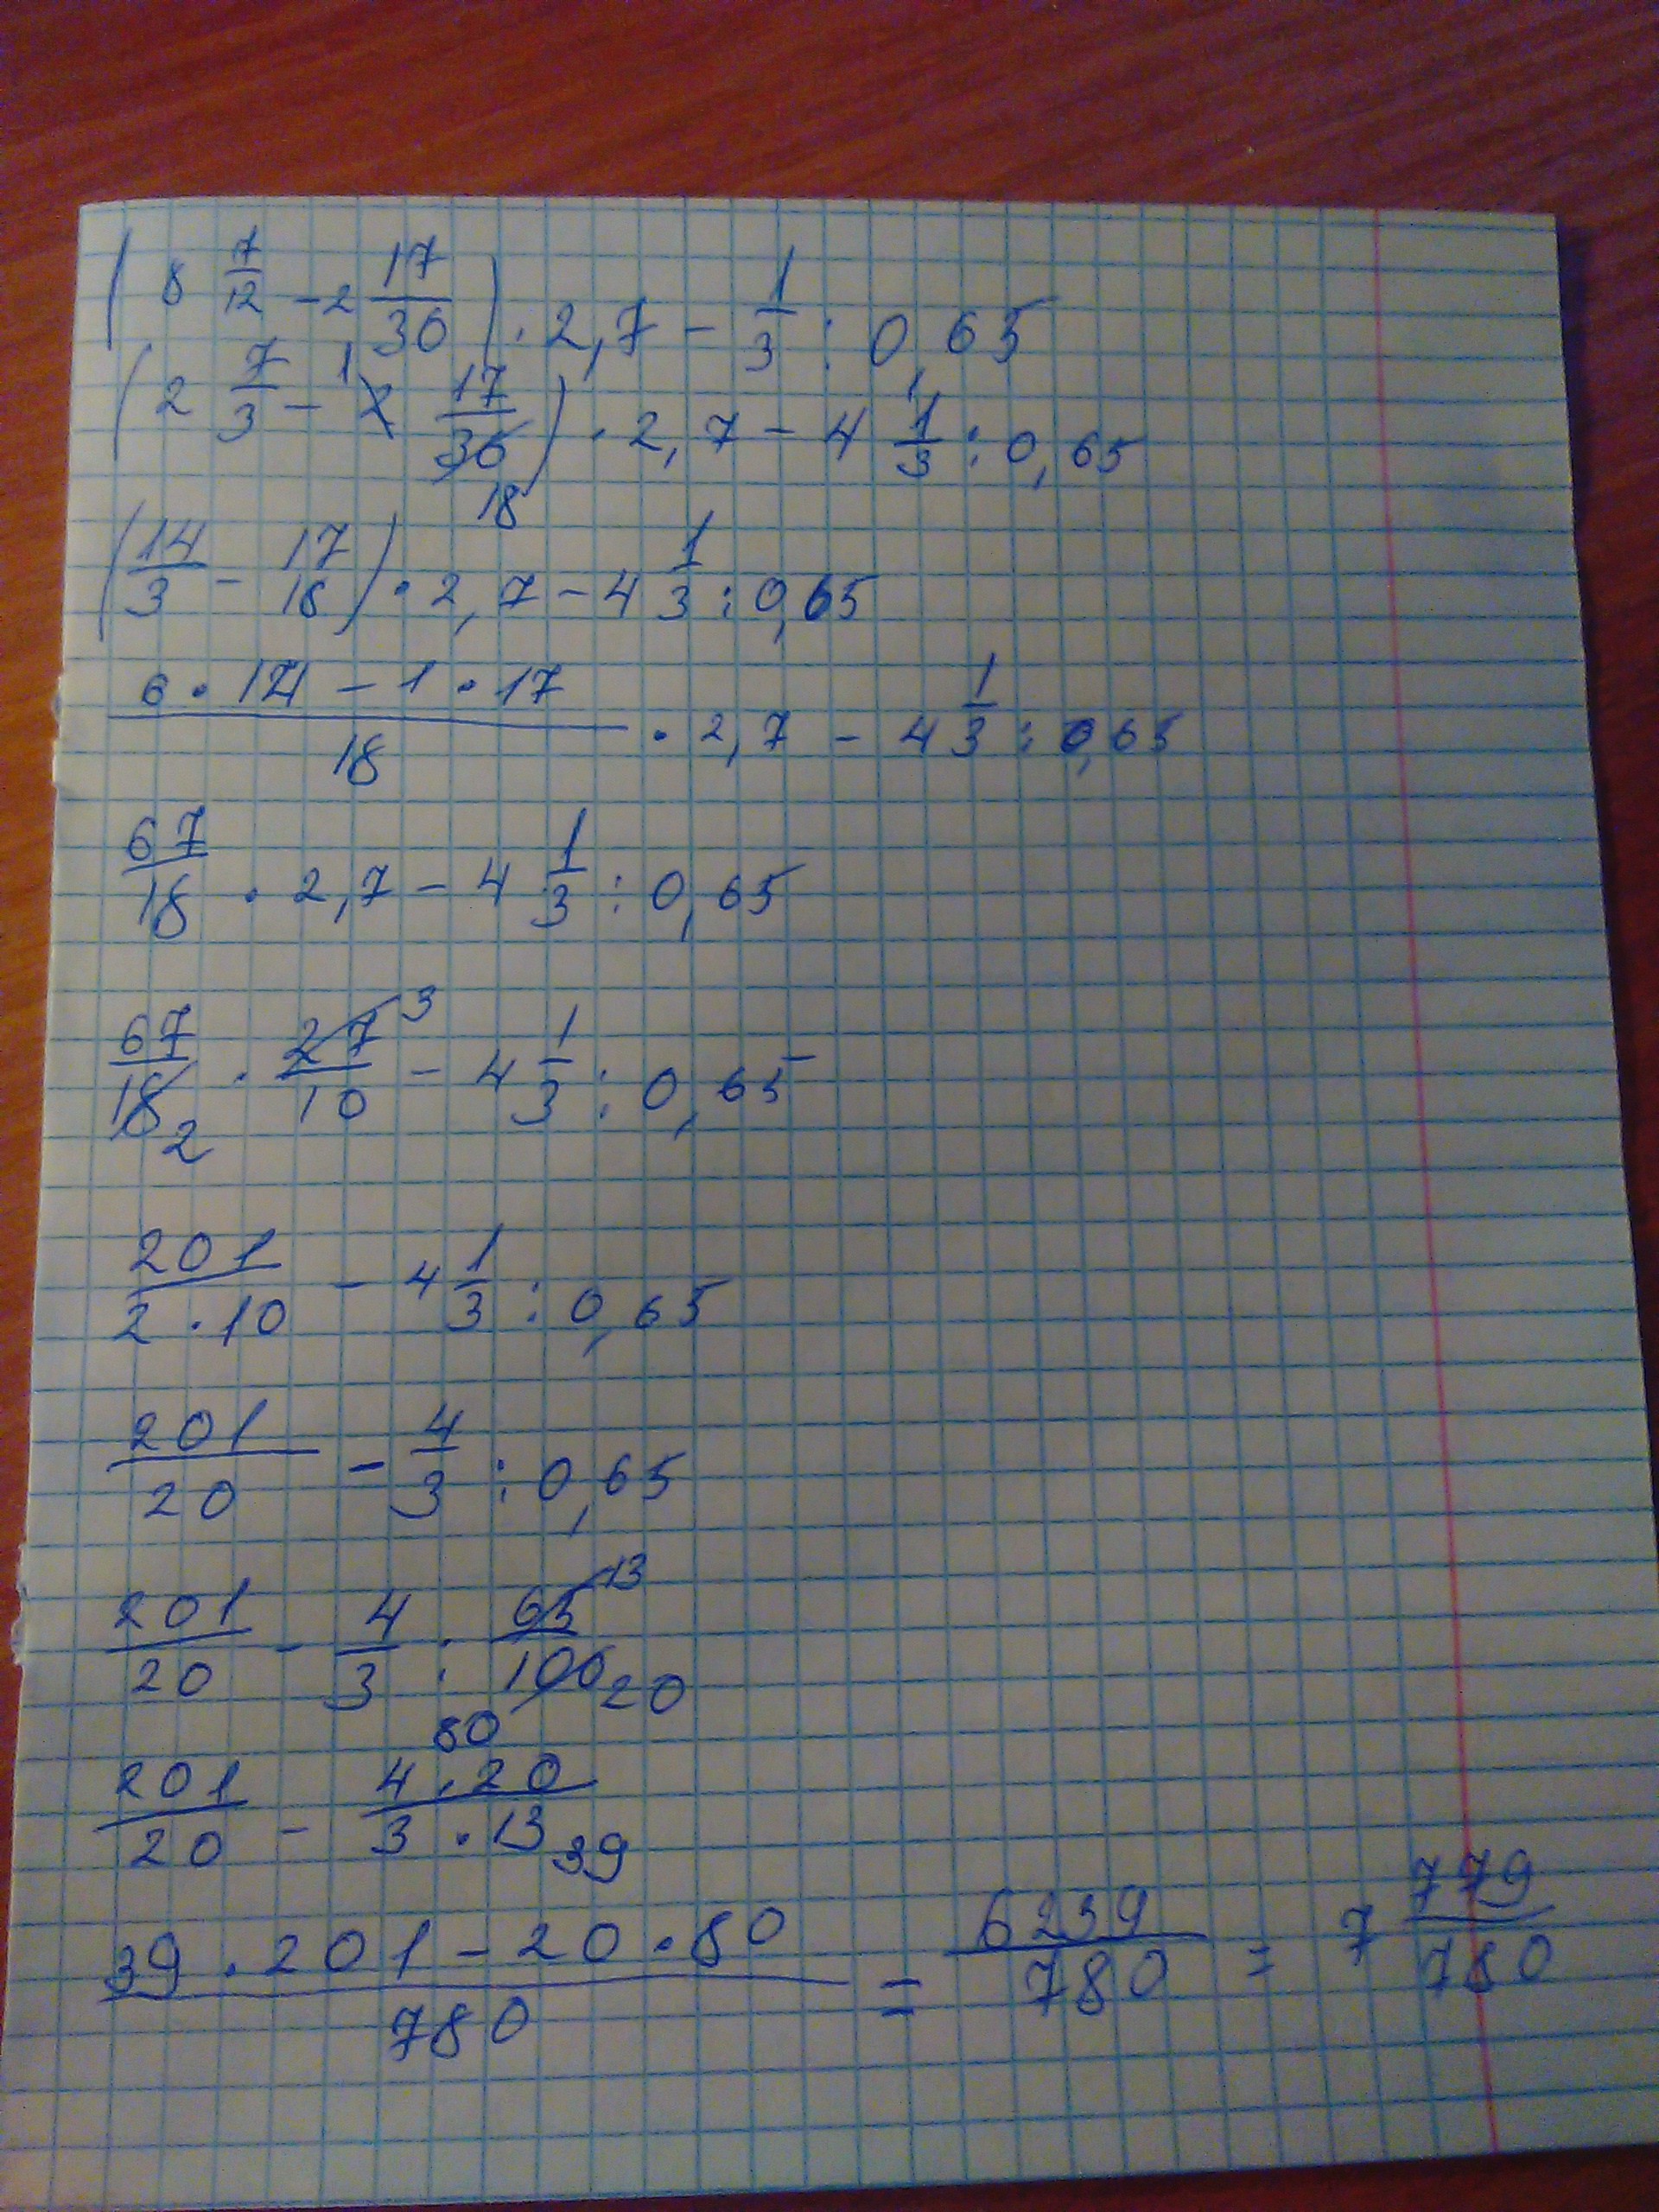 (8 7/12 - 2 17/36) · 2,7 - 1/3 : 0,65
(2 7/3 - 2 1 17/36 18) · 2,7 - 4 1/3 : 0,65
(14/3 - 17/18) · 2,7 - 4 1/3 : 0,65
6 · 14 - 1 · 17/18 · 2,7 - 4 1/3 : 0,65
67/18 · 2,7 - 4 1/3 : 0,65
67/18 2 · 27 3/10 - 4 1/3 : 0,65
201/2 · 10 - 4 1/3 : 0,65
201/20 - 4/3 : 0,65
201/20 - 4/3 : 65 13/100 20
201/20 - 4 · 20 80/3 · 13 39
39 · 201 - 20 · 80/780 = 6239/780 = 7 779/780